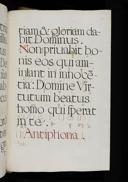 tiam & gloriam da-
bit Dominus.
Non privabit bo-
nis eos qui am-
bulant in innocē-
tia: Domine Vir-
tutum beatus
homo qui sperat
in te.
Antiphona.